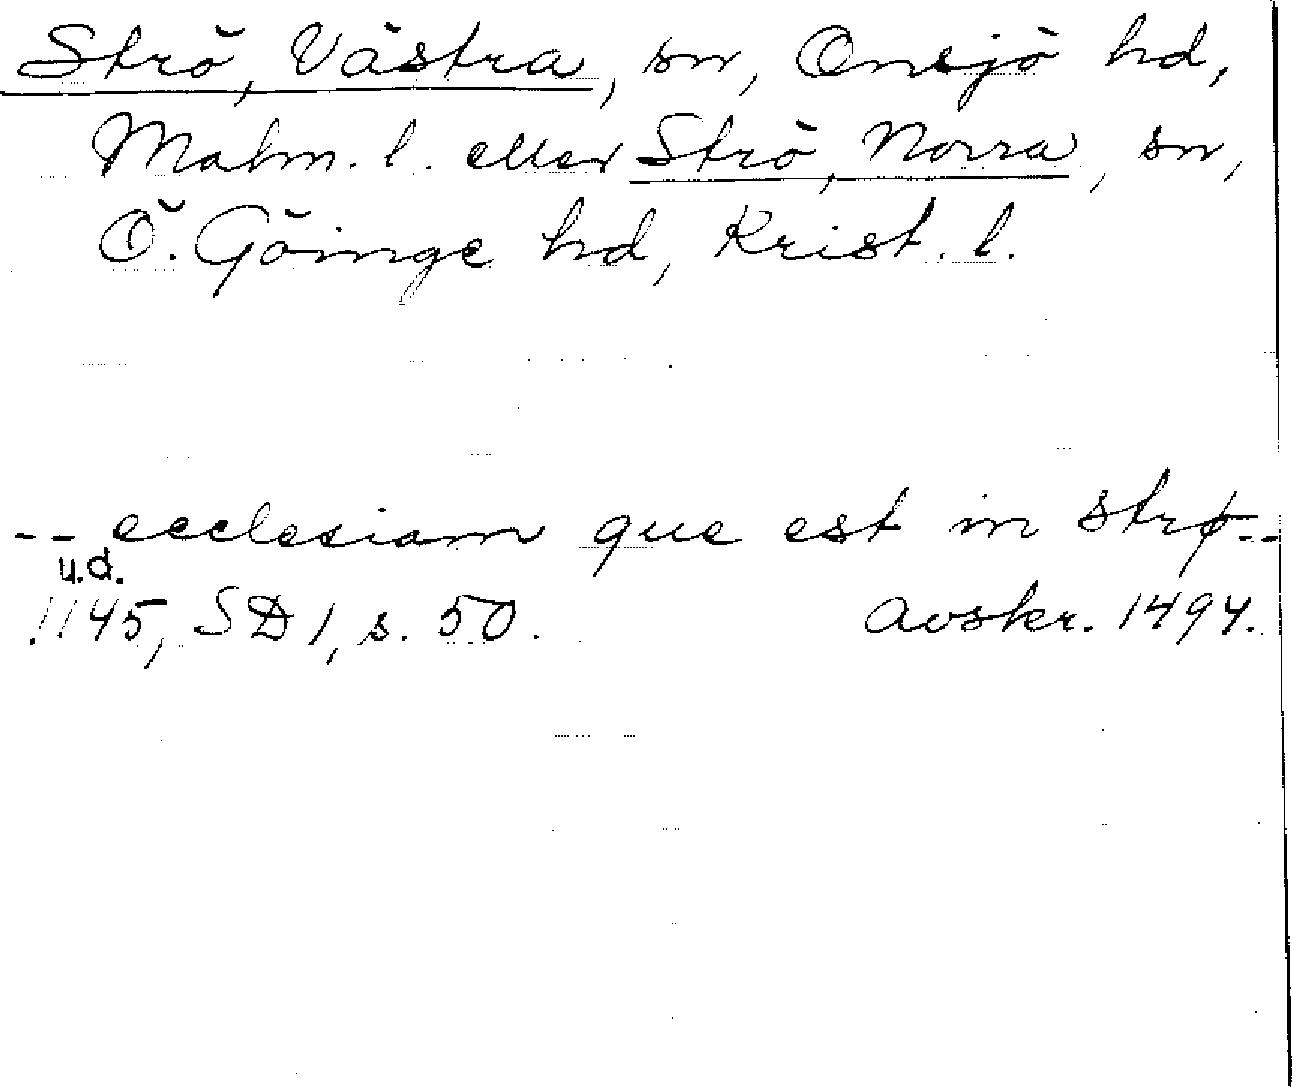 Strö, Västra, sn, Onsjö hd,
Malm. l. eller Strö, Norra, sn,
Ö. Göinge hd, Krist. l.
-- ecclesiam que est in strø--
u.d.
1145, SD 1, s. 50.
avskr. 1494.